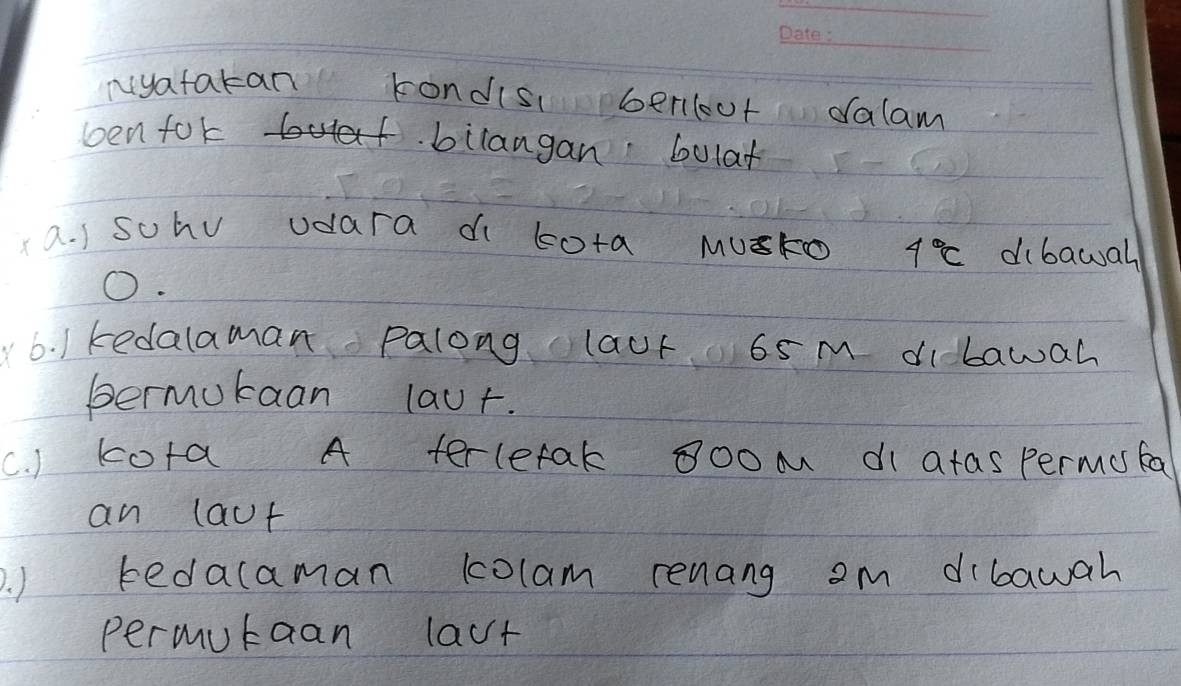 Date :
Nyatakan kondisi berikut dalam
bentuk butat bilangan bulat
a.) suhu udara di kota Musko 4°C dibawah
0.
b.) kedalaman palong laut 65 M di bawah
permukaan laut.
c.) kota A terletak 800 M di atas permuka
an laut
D.) kedalaman kolam renang 2M dibawah
permukaan laut